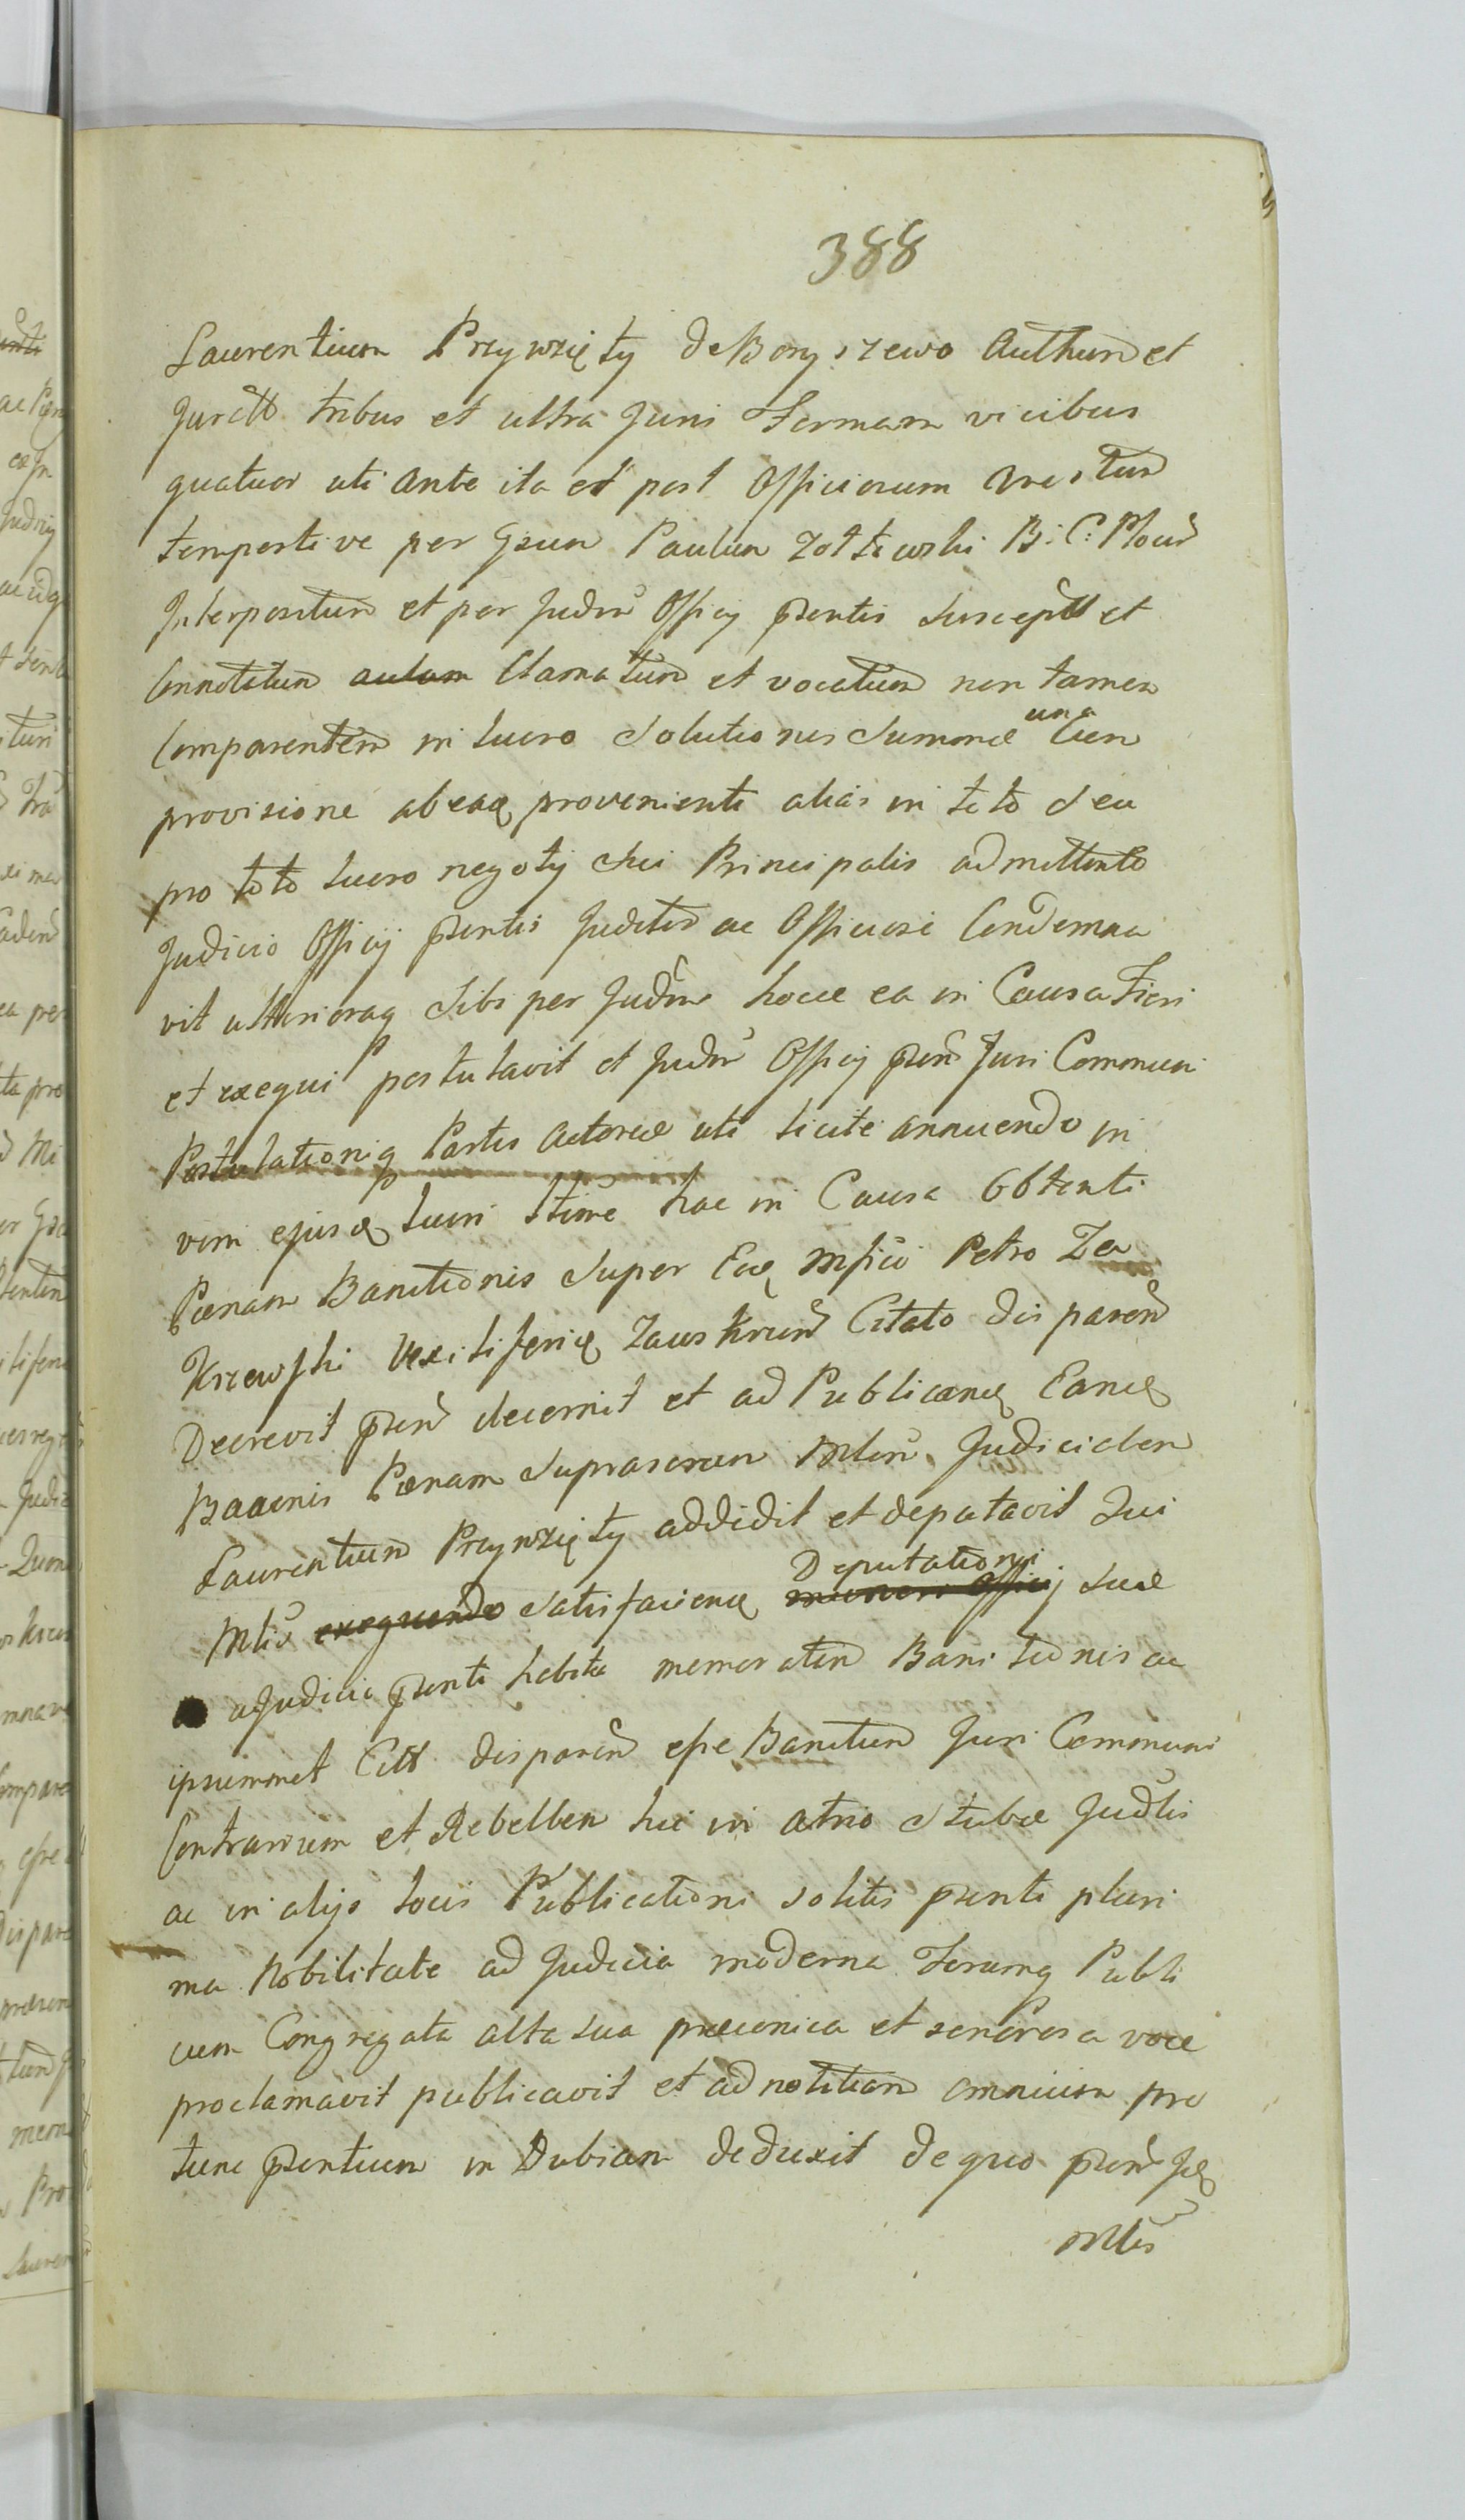 388
Laurentium Przywzięty de Boryszewo Authum et
Jurātt tribus et ultra Juris Formam vicibus
quatuor uti ante ita et post Officiorum Arestum
tempestive per Gsum Paulum Zołtowski B: C: Ploceñ
Interpositum et per Judm̃ Officij p̃sentis suscept̃ et
Connotatum autam Clamatum et vocatum non tamen
Comparentem in lucro Solutionis Summæ una Cum
provisione ab eaq proveniente alias in toto seu
pro toto lucro negotij sui Principalis admittente
Judicio Officij p̃sentis Juditer ac Officiose Condemna
vit ulterioraq sibi per Judm̃ hocce ea in Causa Fieri
et exequi postulavit et Judm̃ Officij p̃sen Juri Communi
Postulationiq Partis Actoreæ uti licite annuendo in
vim ejusq lucri stime hac in Causa Obtenti
Pænam Banitionis super Eoq Mfico Petro Za
Krzewski Vexiliferiq Zauskrzun Citato disparen
Decrevit p̃sen decernit et ad Publicanq Eanq
Baacnis Pænam suprascram Mlem Judicialem
Laurentium Przywzięty addidit et deputavit Qui
Mlis exequendo satisfacienq muneri Officij Deputationi suæ
a Judicio p̃senti habitæ memoratam Banitionis ac
ipsummet Citt disparen esse Banitum Juri Communi
Contrarium et Rebellem hic in atrio Stubæ Judlis
ac in alijs locis Publicationi solitis p̃senti pluri
ma Nobilitate ad Judicia moderna Forumq Publi
cum Congregata alta sua præconica et sonorosa voce
proclamavit publicavit et ad notitiam omnium pro
tunc p̃sentium in Dubiam deduxit de quo p̃sen Jq
Mlis